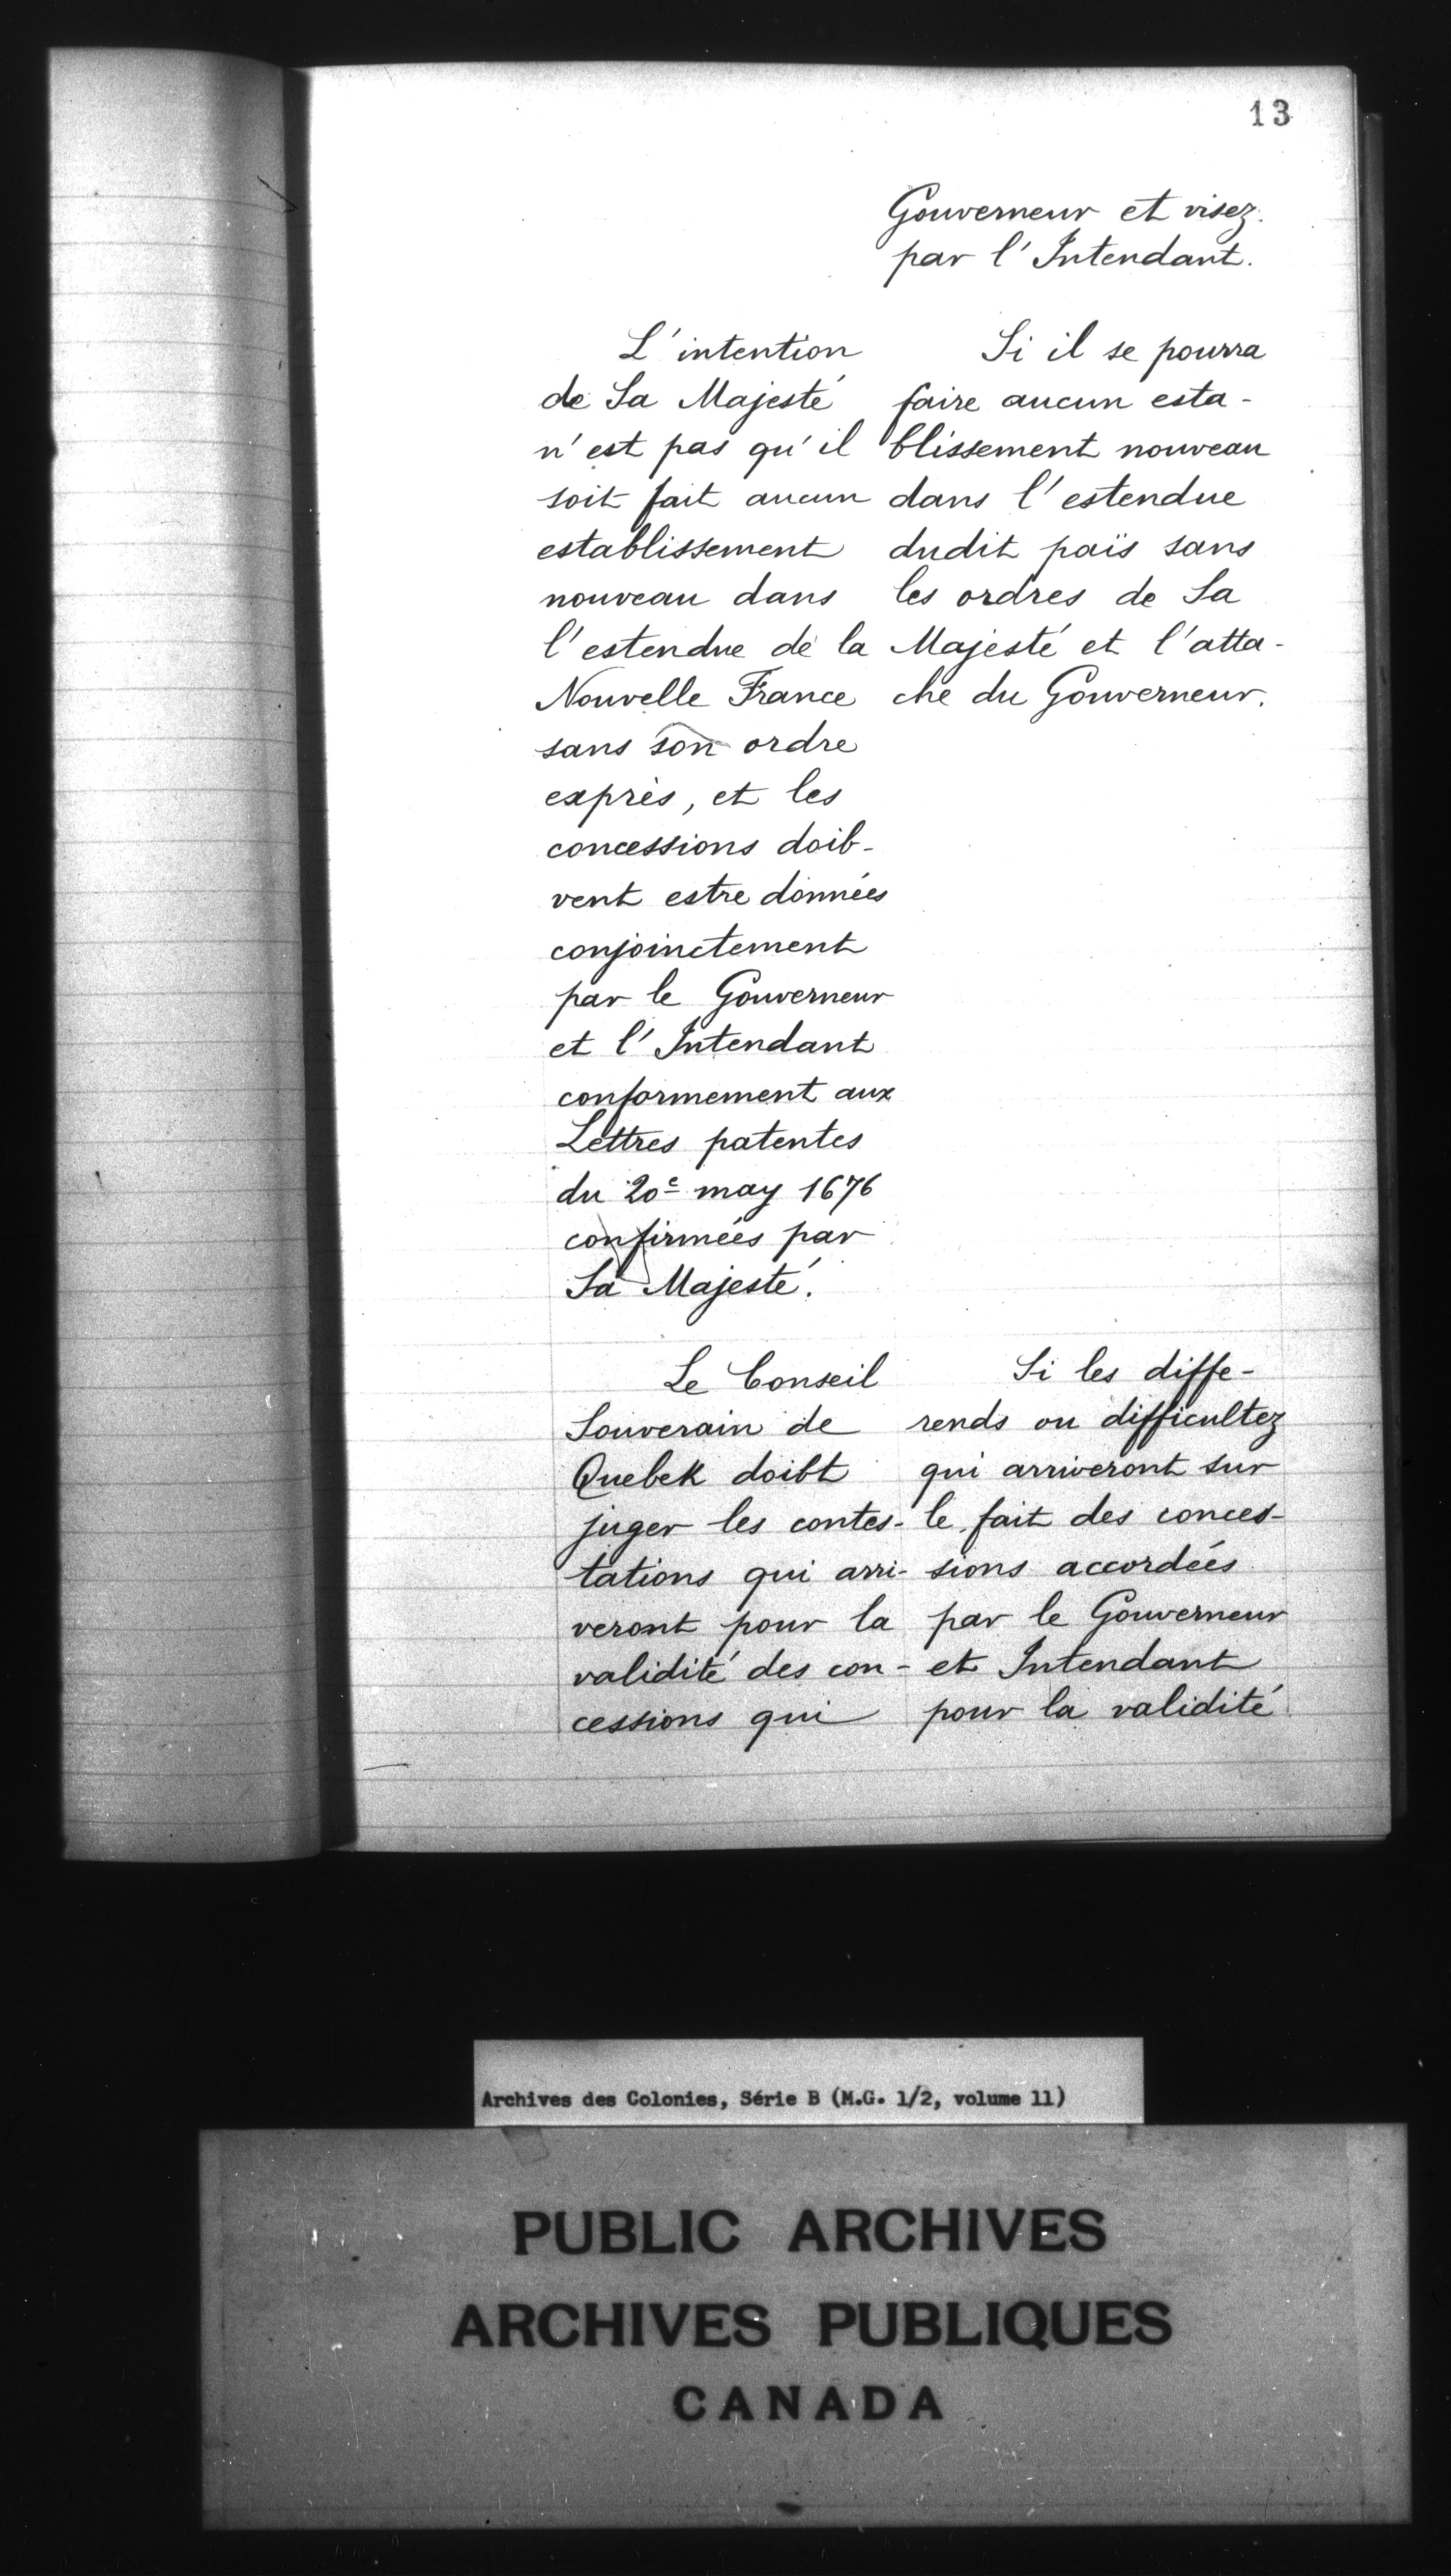 13
Gouverneur et visez
par l'Intendant.
L'intention
de Sa Majesté
n'est pas qu'il
soit fait aucun
establissement
nouveau dans
l'estendue de la
Nouvelle France
sans son ordre
exprès, et les
concessions doib-
vent estre données
conjoinctement
par le Gouverneur
et l'Intendant
conformement aux
Lettres patentes
du 20e may 1676
confirmées par
Sa Majesté.
Si il se pourra
faire aucun esta-
blissement nouveau
dans l'estendue
dudit païs sans
les ordres de Sa
Majesté et l'atta-
che du Gouverneur.
Le Conseil
Souverain de
Quebek doibt
juger les contes-
tations qui arri-
veront pour la
validité des con-
cessions qui
Si les diffe-
rends ou difficultez
qui arriveront sur
le fait des conces-
sions accordées
par le Gouverneur
et Intendant
pour la validité
Archives des Colonies, Série B (M.G. 1/2, volume 11)
PUBLIC ARCHIVES
ARCHIVES PUBLIQUES
CANADA